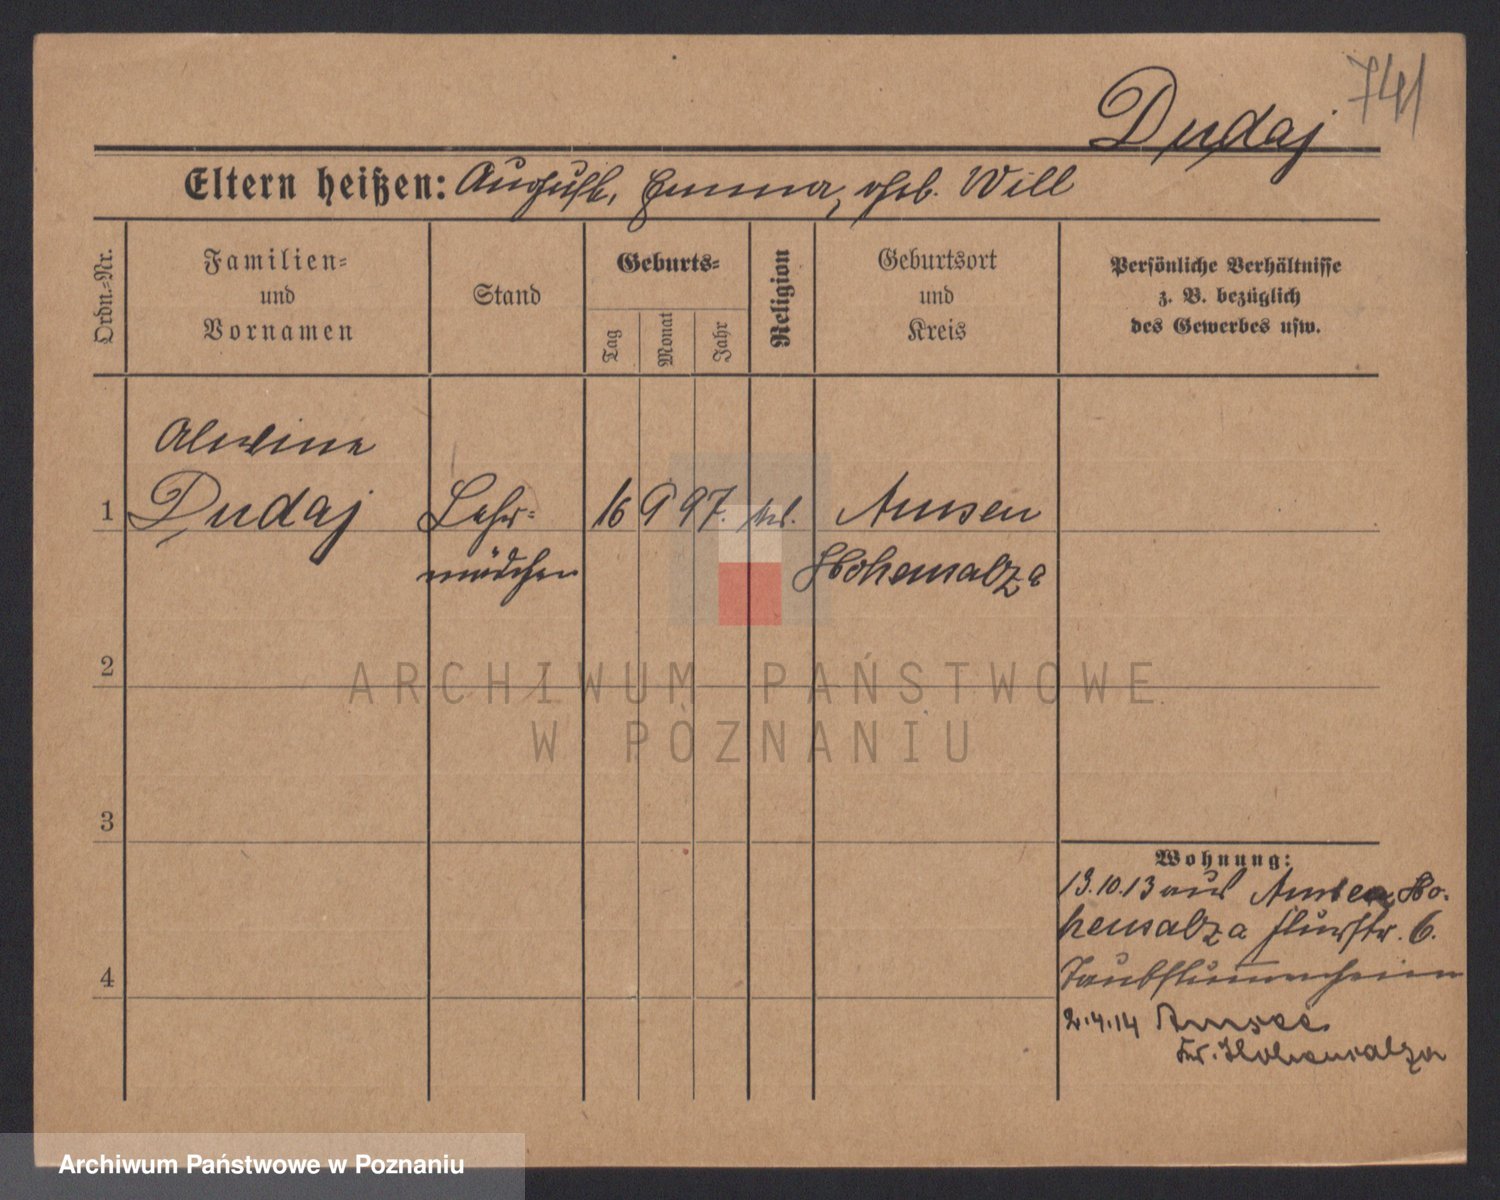 741
Dudaj
Eltern heißen: August, Emma, geb. Will
Ordn.-Nr.
Familien-
und
Vornamen
Stand
Geburts-
Tag
Monat
Jahr
Religion
Geburtsort
und
Kreis
Persönliche Verhältnisse
z. B. bezüglich
des Gewerbes usw.
Alwine
1 Dudaj Lehr- 16 9 97. Amsee
mädchen Hohensalza
2
ARCHIWUM PAŃSTWOWE
W POZNANIU
3
Wohnung:
13.10.13 aus Amsee, Ho-
hensalza Flurstr. 6.
Taubstummenheim
2.4.14 Amsee
Kr. Hohensalza
4
Archiwum Państwowe w Poznaniu